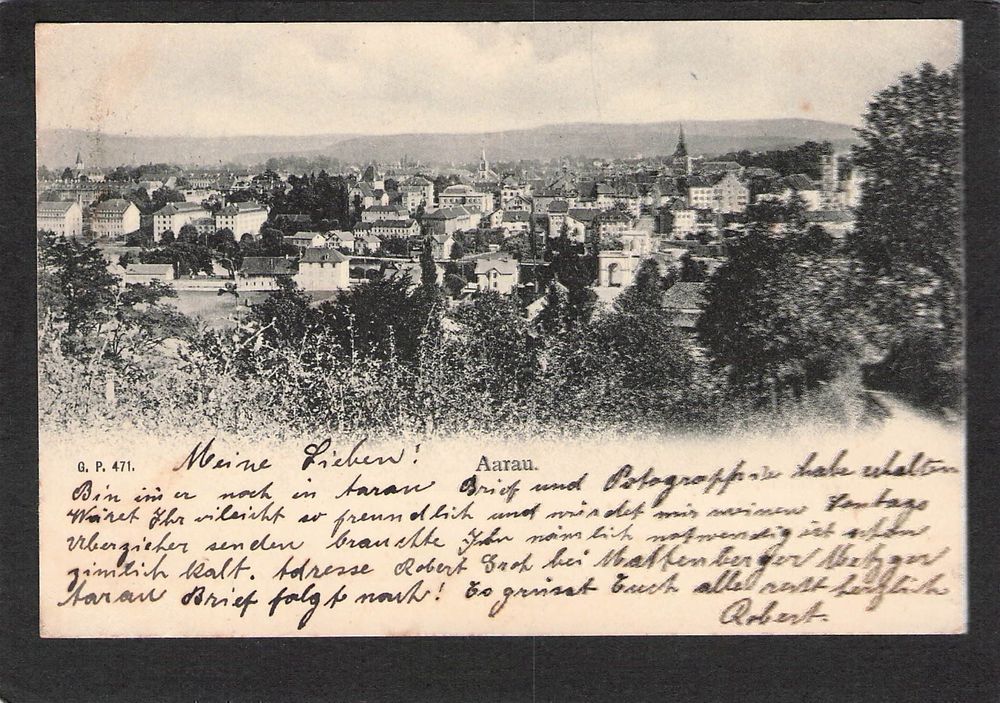 G. P. 471.
Meine Lieben!
Aarau.
Bin imer noch in Aarau Brief und Potograpphie habe erhalten
Wäret Ihr vileicht so freundlich und würdet mir meinen Sontags
Uberzieher senden brauchte Ihn nämlich notwendig ist schon
zimlich kalt. Adresse Robert Groh bei Mattenberger Metzger
Aarau Brief folgt nach! Es grüsst Euch alle recht herzlich
Robert.